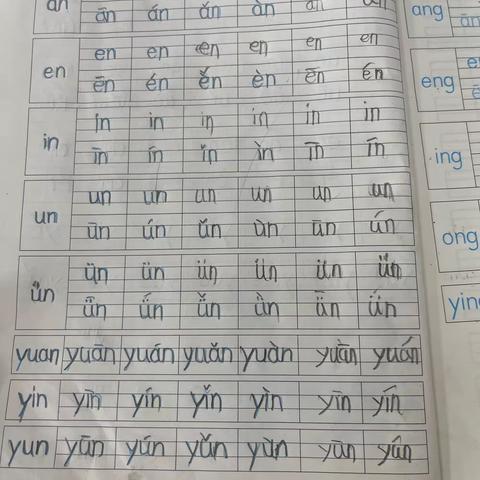 an ān án ǎn àn
en en en en en en en
ēn én ěn èn ēn én
in in in in in in in
īn ín ǐn ìn īn īn
un un un un un un un
ūn ún ǔn ùn ūn ún
ün ün ün ün ün ün ün
ǖn ǘn ǚn ǜn ǖn ǘn
yuan yuān yuán yuǎn yuàn yuàn yuán
yin yīn yín yǐn yìn yīn yín
yun yūn yún yǔn yùn yūn yún
ang
eng
ing
ong